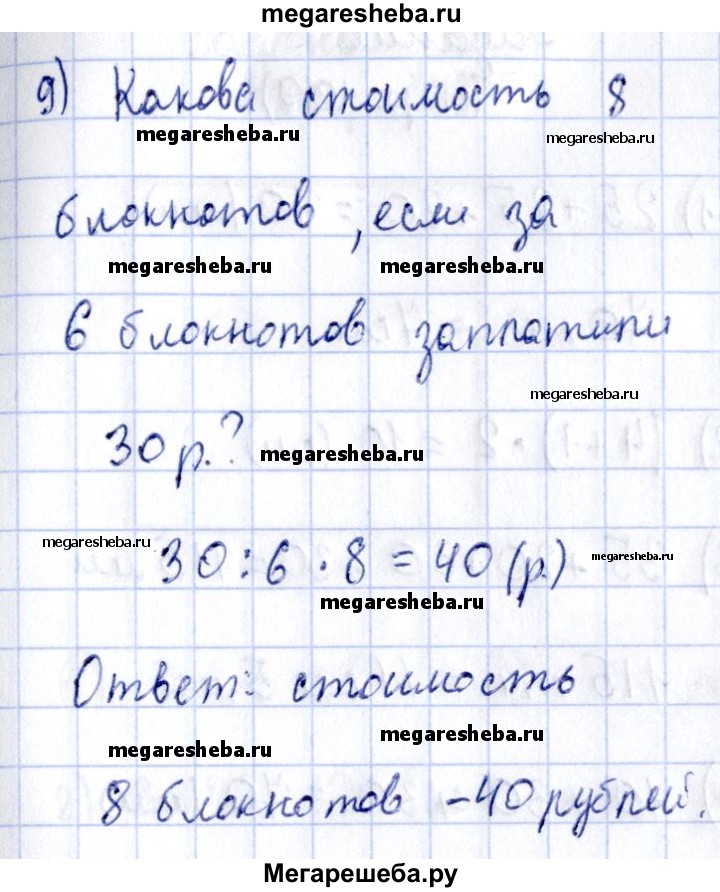 megaresheba.ru
9) Какова стоимость 8
megaresheba.ru megaresheba.ru
блокнотов, если за
megaresheba.ru megaresheba.ru
6 блокнотов заплатили
megaresheba.ru
30 р.?
megaresheba.ru
megaresheba.ru
30:6·8=40 (р.)
megaresheba.ru
megaresheba.ru
Ответ: стоимость
megaresheba.ru megaresheba.ru
8 блокнотов – 40 рублей.
Мегарешеба.ру